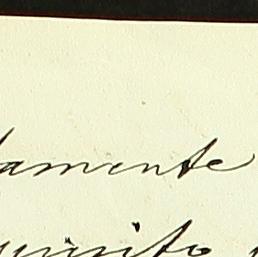 damente
quisito